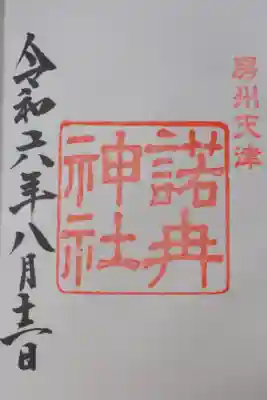 房州天津
諾冉
神社
令和六年八月十二日